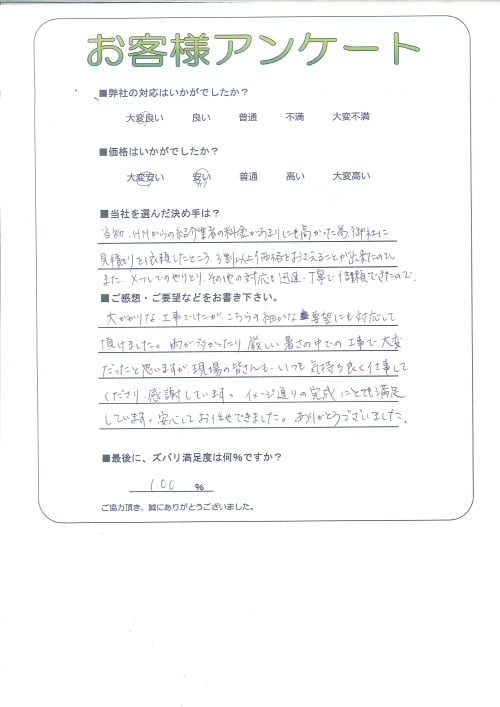 お客様アンケート
■弊社の対応はいかがでしたか？
大変良い 良い 普通 不満 大変不満
■価格はいかがでしたか？
大変安い 安い 普通 高い 大変高い
■当社を選んだ決め手は？
当初、HMからの紹介業者の料金があまりにも高かった為、御社に
見積りを依頼したところ、3割以上価格をおさえることが出来たので
また、メールでのやりとり、その他の対応も迅速、丁寧で信頼できたので、
■ご感想・ご要望などをお書き下さい。
大がかりな工事でしたが、こちらの細かな要望にも対応して
頂けました。雨が多かったり厳しい暑さの中での工事で、大変
だったと思いますが、現場の皆さんも、いつも気持ち良く仕事して
くださり、感謝しています。イメージ通りの完成にとても満足
しています。安心してお任せできました。ありがとうございました。
■最後に、ズバリ満足度は何％ですか？
100 ％
ご協力頂き、誠にありがとうございました。